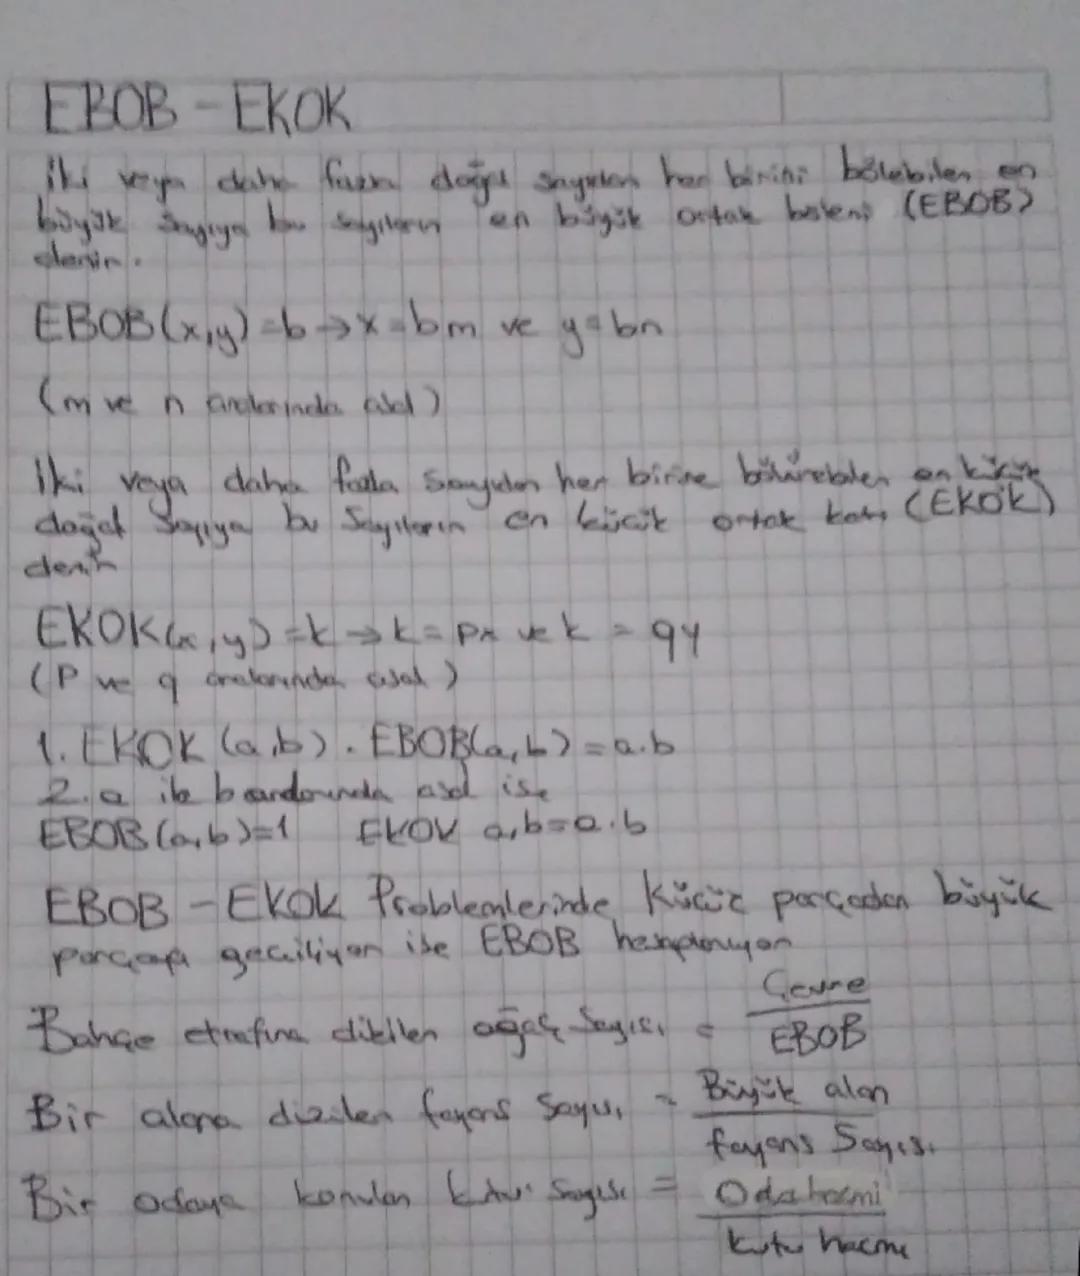 EBOB - EKOK
İki veya daha fazla doğal sayıdan her birini bölebilen en
büyük sayıya bu sayıların en büyük ortak böleni (EBOB)
denir.
EBOB(x,y)=b→x=bm ve y=bn
(m ve n aralarında asal)
İki veya daha fazla sayıdan her birine bölünebilen en küçük
doğal sayıya bu sayıların en küçük ortak katı (EKOK)
denir
EKOK(x,y)=k→k=px ve k=qy
(P ve q aralarında asal)
1. EKOK (a,b). EBOB(a,b)=a.b
2. a ile b aralarında asal ise
EBOB(a,b)=1 EKOK a,b=a.b
EBOB - EKOK Problemlerinde Küçük parçadan büyük
parçaya geçiliyor ise EBOB hesaplanıyor
Bahçe etrafına dikilen ağaç Sayısı = Çevre / EBOB
Bir alana dizilen fayans Sayısı = Büyük alan / fayans Sayısı
Bir odaya konulan kutu Sayısı = Oda hacmi / kutu hacmi